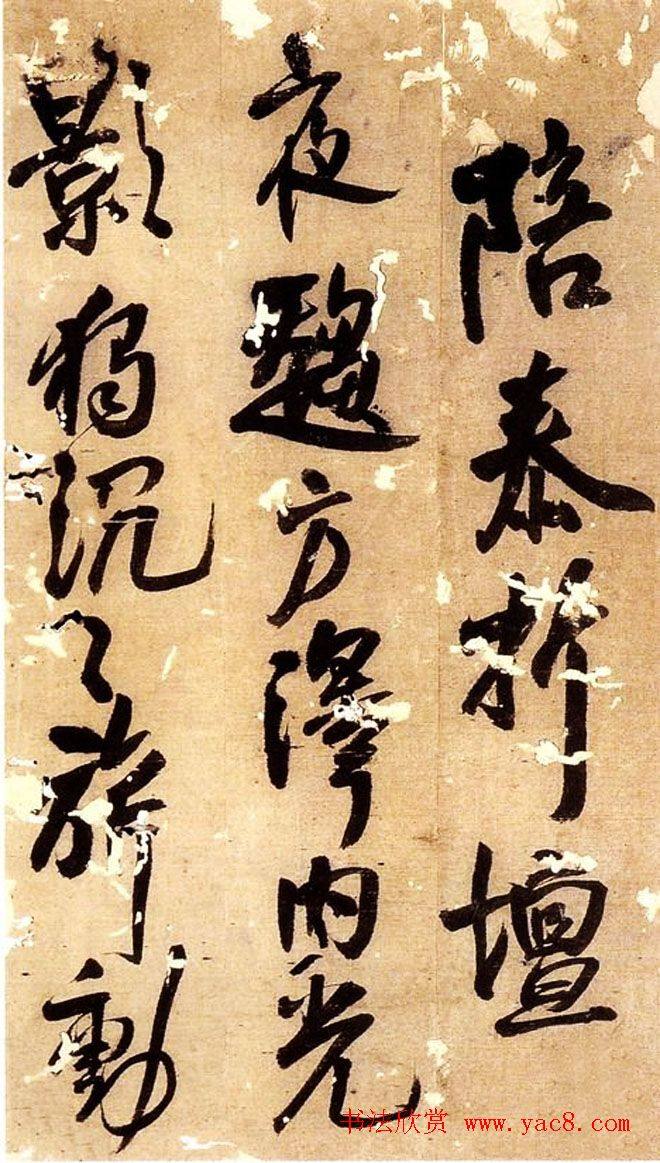 陪泰折壇
夜方澤内光
影獨沉々旂動
书法欣赏 www.yac8.com